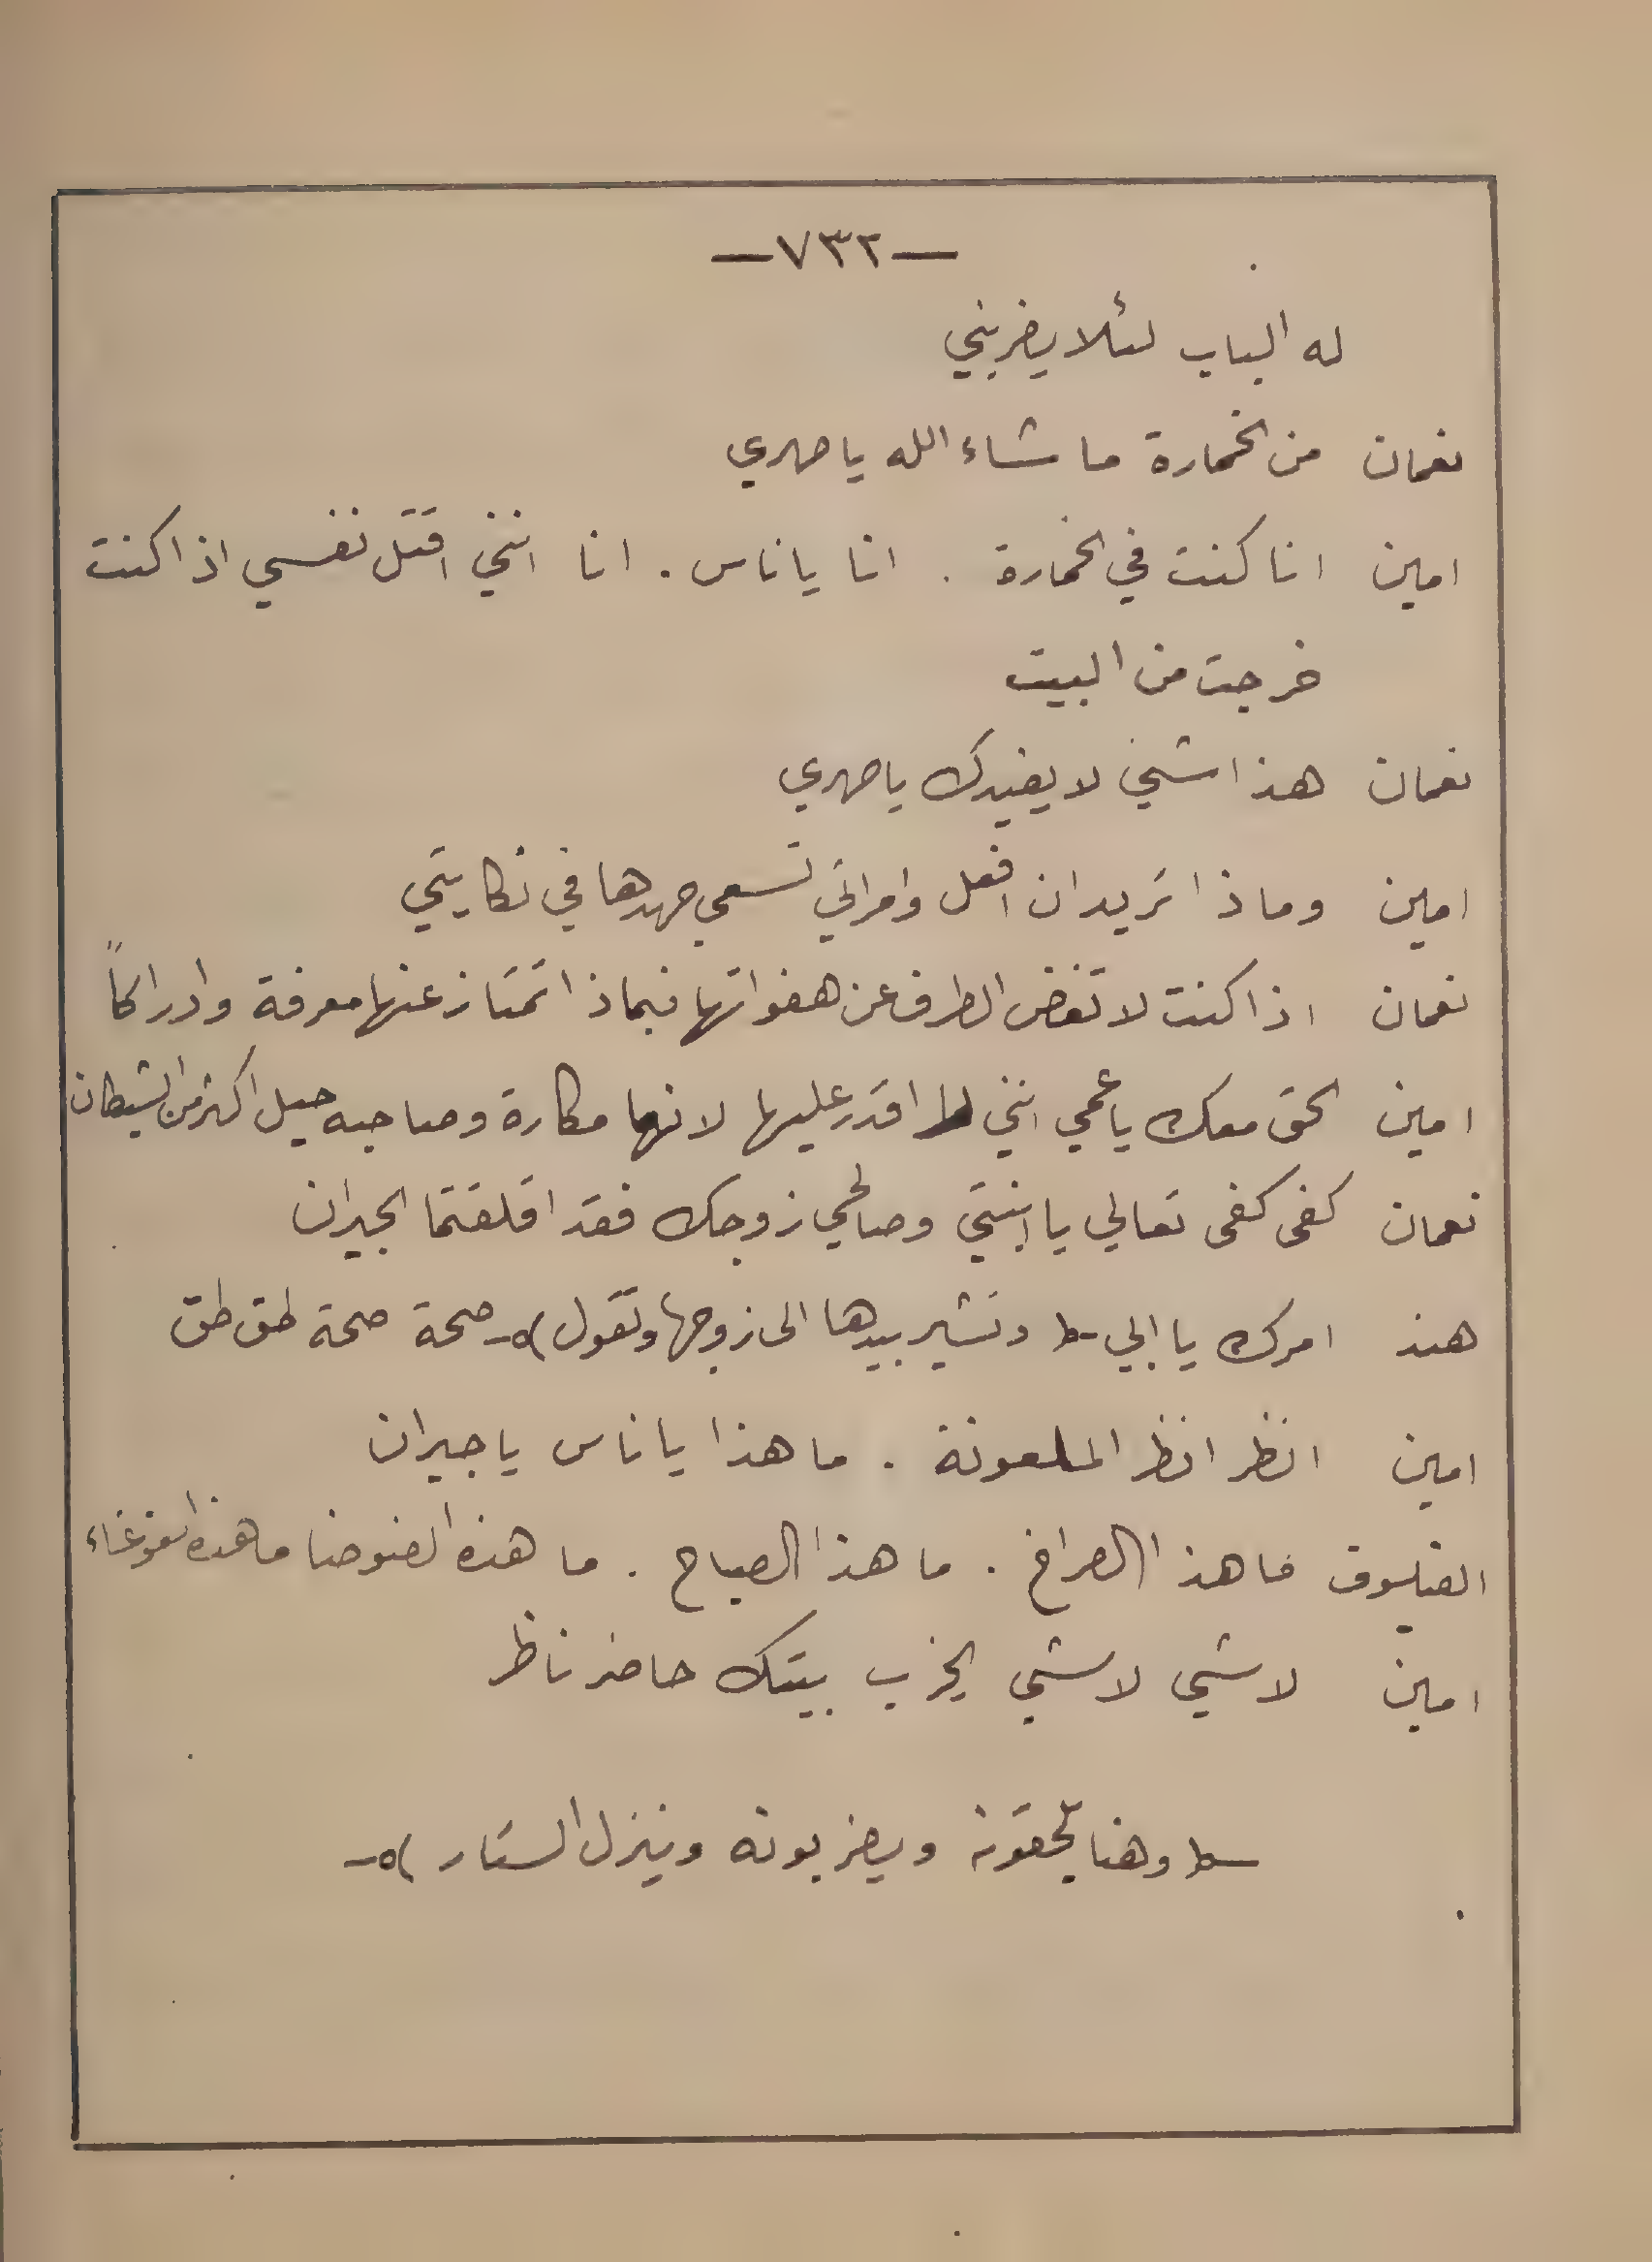 — ٧٣٢ —
له الباب لئلا يضربني
نعمان من الخمارة ما شاء الله يا صهري
امين انا كنت في الخمارة . انا يا ناس . انا انني اقتل نفسي اذا كنت
خرجت من البيت
نعمان هذا شئ لا يفيدك يا صهري
امين وماذا تريد ان افعل وامراتي تسعى جهدها في نكايتي
نعمان اذا كنت لا تغض الطرف عن هفواتها فبماذا تمتاز عنها معرفة وادراكاً
امين الحق معك يا عمي انني لا اقدر عليها لانها مكارة وصاحبه حيل اكثر من الشيطان
نعمان كفى كفى تعالي يا ابنتي وصالحي زوجك فقد اقلقتما الجيران
هند امرك يا ابي -( وتشير بيدها الى زوجها وتقول )- صحة صحة طق طق
امين انظر انظر الملعونة . ما هذا يا ناس يا جيران
الفيلسوف ما هذا الصراخ . ما هذا الصياح . ما هذه الضوضا ما هذه الغوغاء
امين لا شي لا شي يخرب بيتك حاضر ناظر
-( وهنا يلحقونه ويضربونه وينزل الستار )-